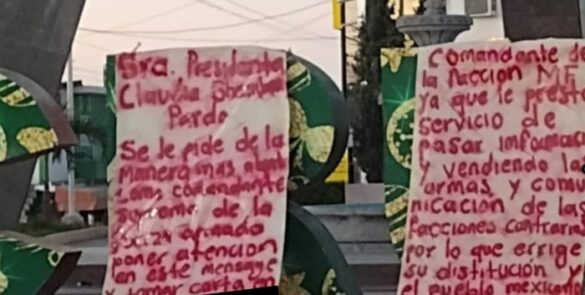 Sra. Presidenta
Claudia Sheinbaum
Pardo
Se le pide de la
manera mas atenta
como comandante
supremo de la
armada
poner atencion
en este mensage
y tomar carta en
Comandante de
la naccion
ya que le presta
servicio de
pasar informac
y vendiendo la
armas y comu
nicacion de las
facciones contraria
por lo que errige
su distitución y
el pueblo mexicano